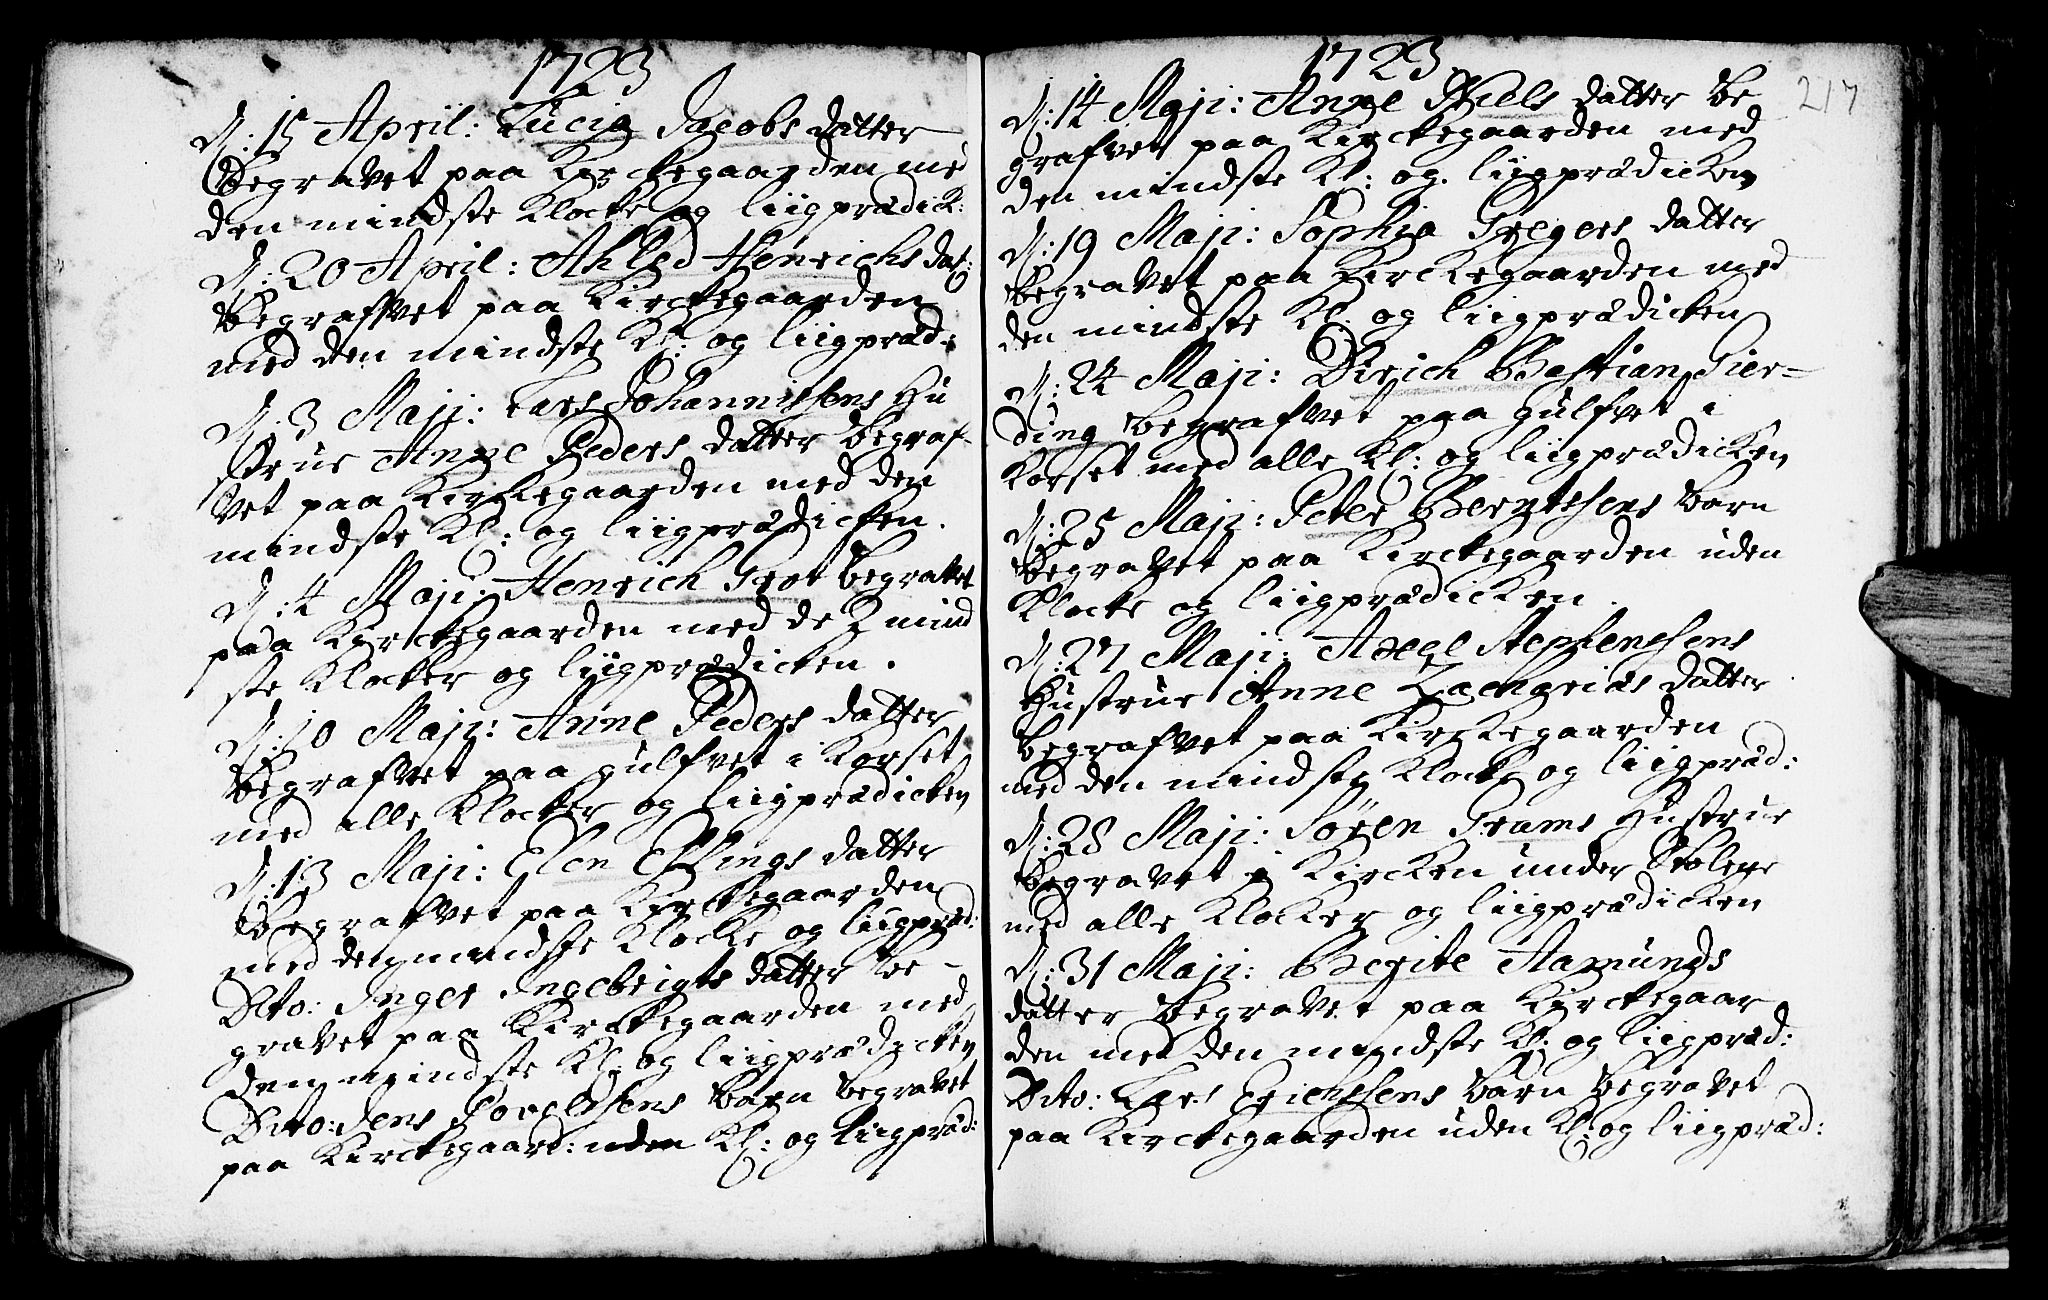 1723
D: 15 April: Lucia Jacobs datter
Begravet paa Kirckegaarden me
den mindste Klocke og liigprædick:
D: 20 April: Ahled Henrichs dat:
Begrafvet paa Kirckegaarden
med den mindste Kl: og liigpræd:
D: 3 Maji: Lars Johannissens Hu
strue Anne Peders datter Begraf-
vet paa Kirckegaarden med den
mindste Kl: og liigprædicken.
D: 4 Maji: Henrich Grot begravet
paa Kirckegaarden med de 2 mind
ste Klocker og liigprædicken.
D: 10 Maji: Anne Peders datter
Begrafvet paa gulfvet i Korset
med alle Klocker og liigprædicken
D: 13 Maji: Elen Ellings datter
Begrafvet paa Kirckegaarden
med den mindste Klocke og liigpræd:
Dito: Inger Ingebrigts datter be-
gravet paa Kirckegaarden med
den mindste Kl: og liigprædicken
Dito: Jens Povelssens Barn begravet
paa Kirckegaard: uden Kl: og liigpræd:
1723
217
D: 14 Maji: Anne Niels datter Be
grafvet paa Kirckegaarden med
den mindste Kl: og liigprædicken
D: 19 Maji: Sophia Gregers datter
Begravet paa Kirckegaarden med
den mindste Kl: og liigprædicken
D: 24 Maji: Dirich Bastian Gier-
ding begrafvet paa gulfvet i
Korset med alle Kl: og liigprædicken
D: 25 Maji: Peter Berntssens barn
Begravet paa Kirckegaarden uden
Klocke og liigprædicken.
D: 27 Maji: Axel Stephenssens
Hustrue Anne Zacharias datter
begrafvet paa Kirckegaarden
med den mindste Klocke og liigpræd:
D: 28 Maji: Sören Grams Hustrue
Begravet i Kircken under Stolene
med alle Klocker og liigprædicken
D: 31 Maji: Berite Aamunds
datter Begravet paa Kirckegaar
den med den mindste Kl: og liigpræd:
Dito: Lars Erichssens barn begravet
paa Kirckegaarden uden Kl: og liigpræd: